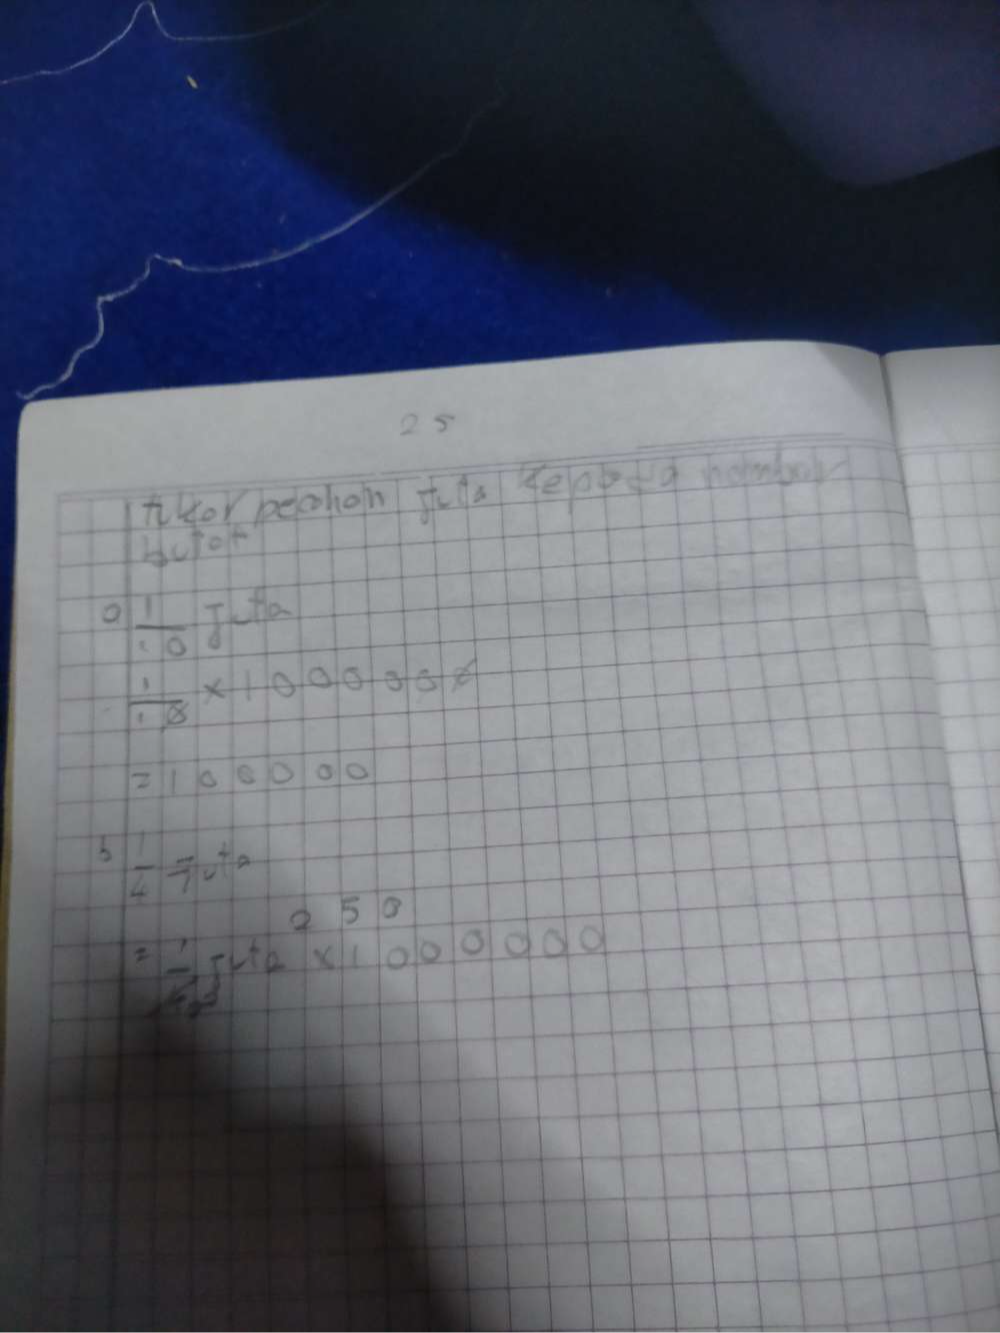 25
tukar pecahan juta kepada nombor
bulat
a 1
10 juta
1
10 × 1000000
= 100000
b 1
4 Juta
0 50
= 1
juta × 1000000